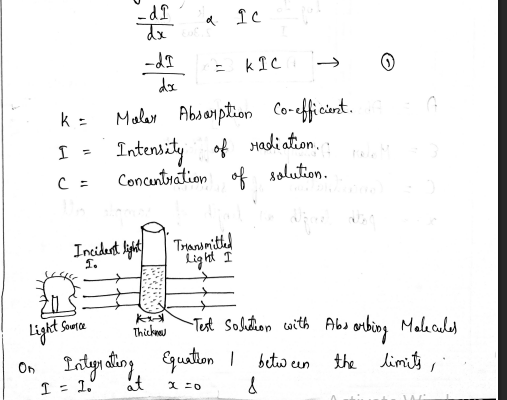 -dI/dx α IC
-dI/dx = kIC → ①
k = Molar Absorption Co-efficient.
I = Intensity of radiation.
C = Concentration of solution.
Incident light I₀
Transmitted light I
Light Source
x
Thickness
Test Solution with Absorbing Molecules
On Integrating Equation 1 between the limits,
I = I₀ at x=0 &